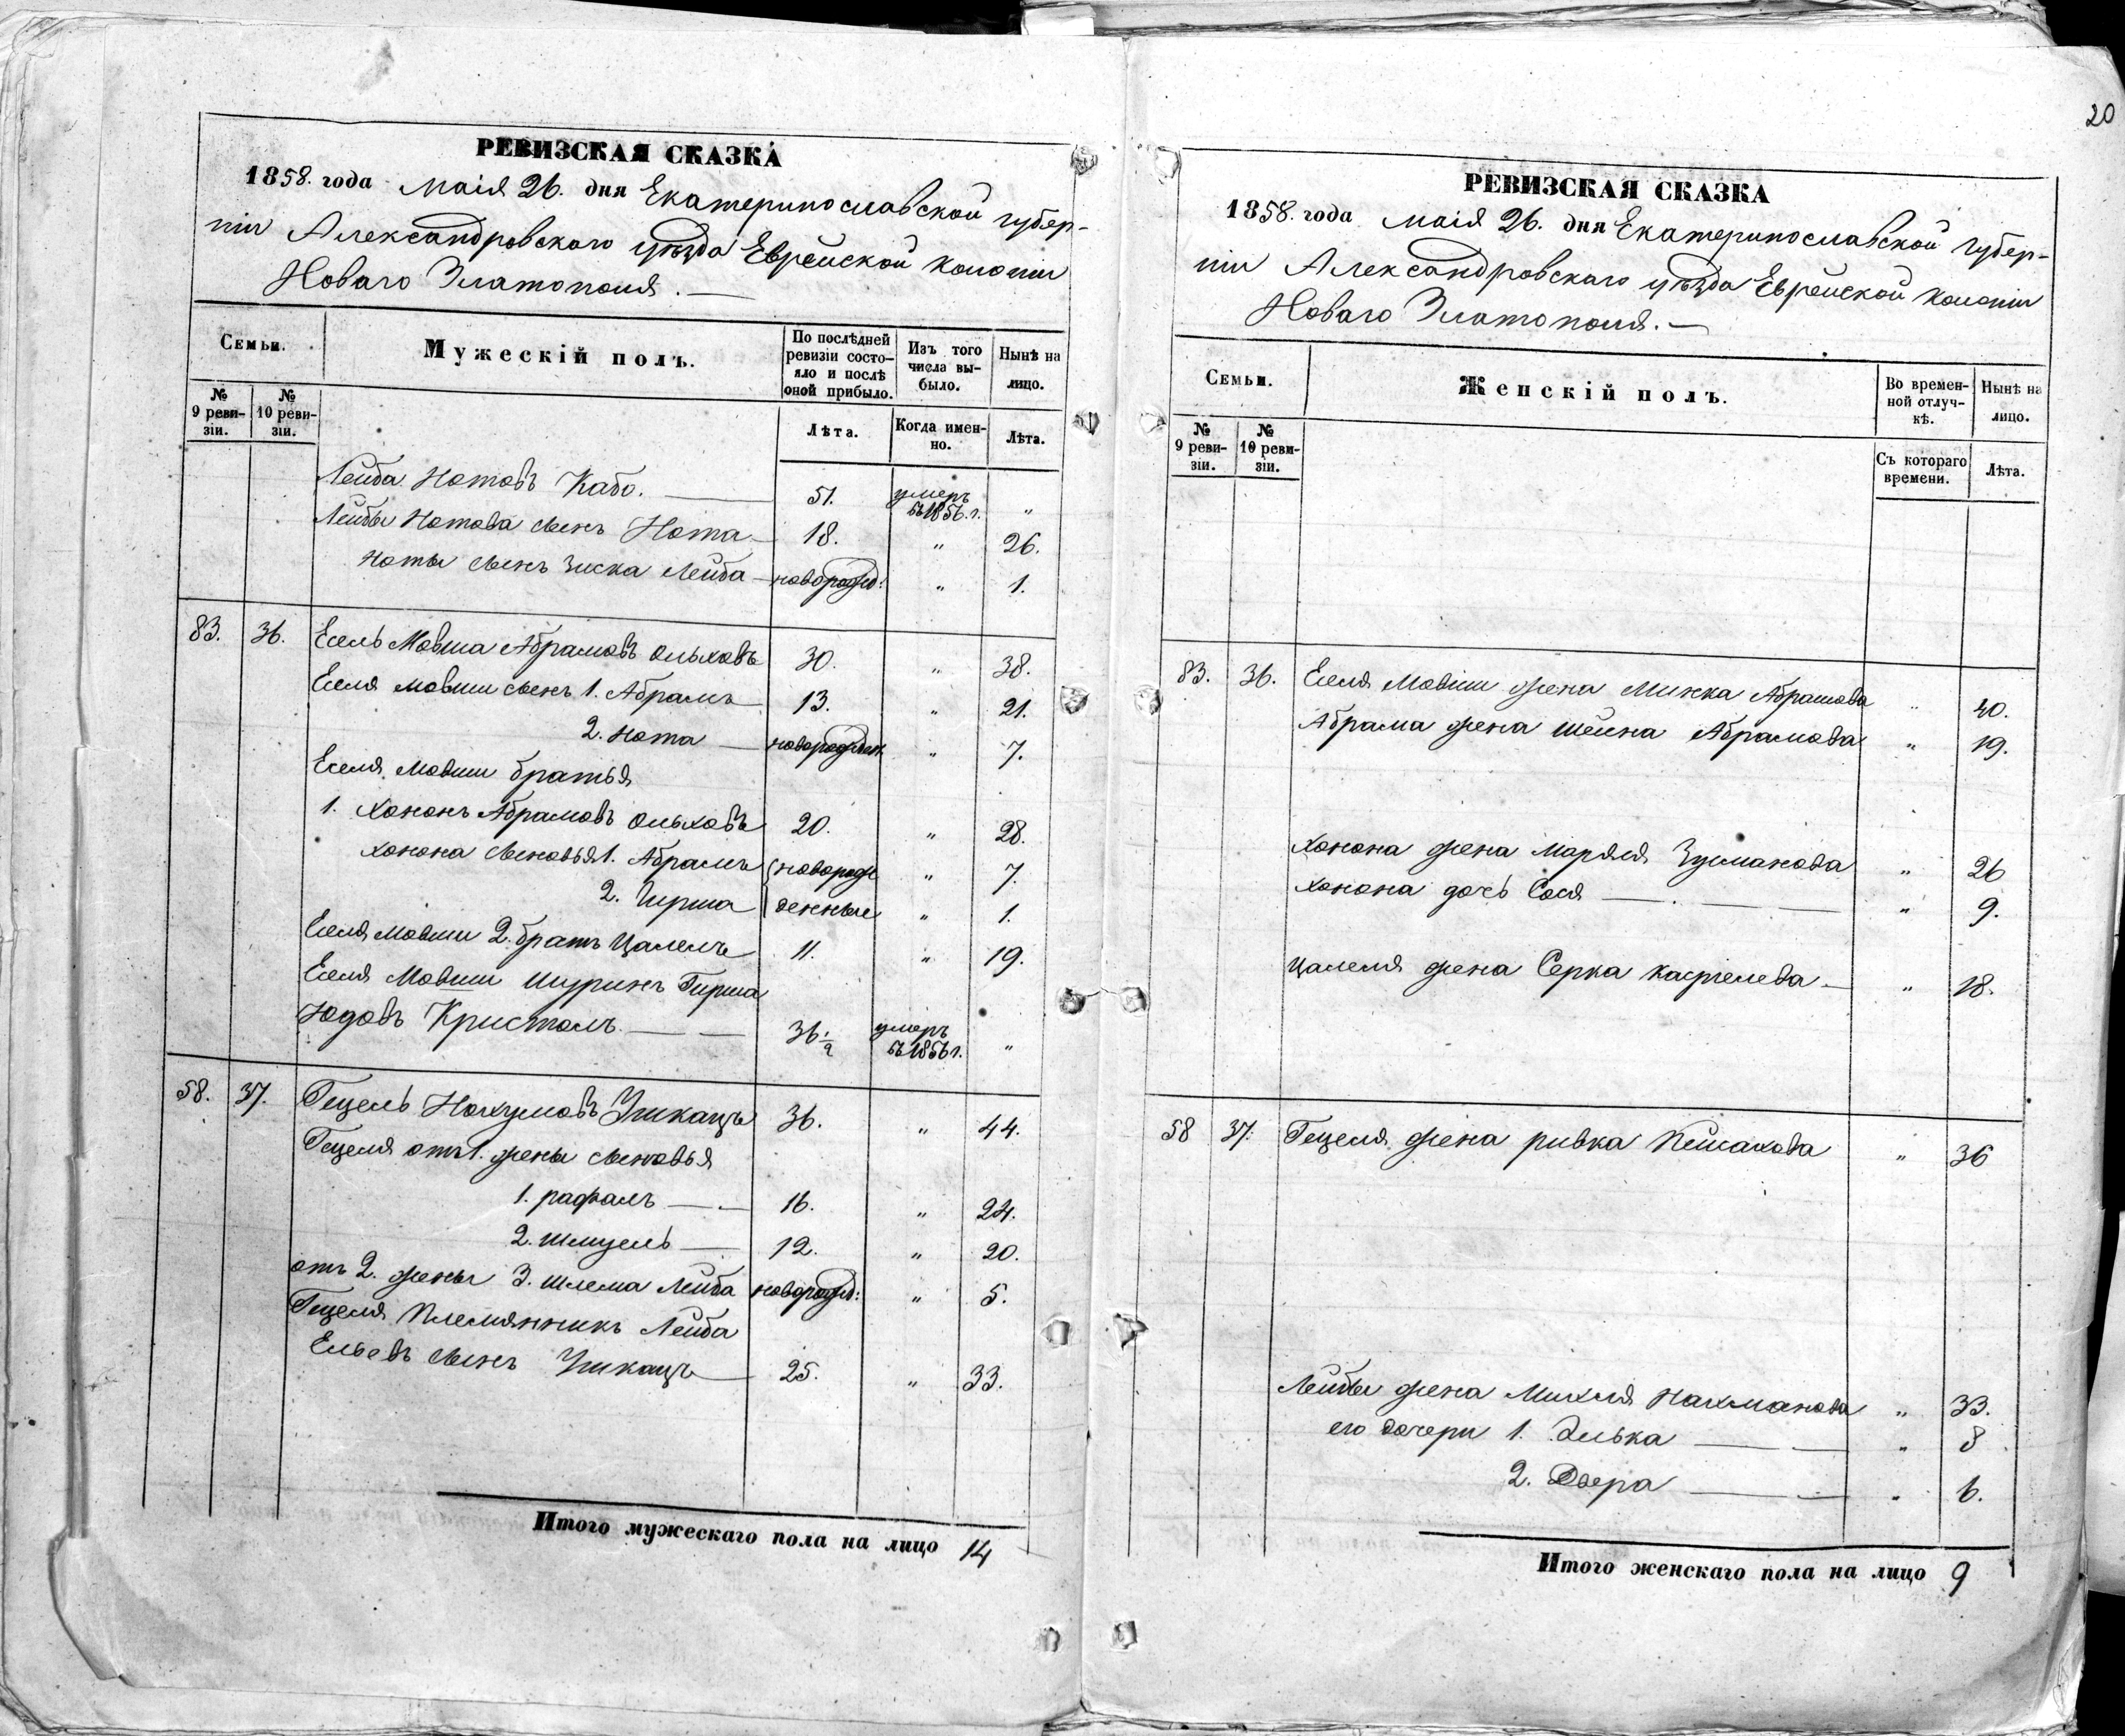 20
РЕВИЗСКАЯ СКАЗКА
1858. года Маія 26. дня Екатеринославской губер-
ніи Александровскаго уѣзда Еврейской колоніи
Новаго Златополя.
Семьи.
Мужескій полъ.
По послѣдней ревизіи состояло и послѣ оной прибыло.
Изъ того числа выбыло.
Нынѣ на лицо.
№ 9 ревизіи.
№ 10 ревизіи.
Лѣта.
Когда именно.
Лѣта.
Лейба Нотовъ Кабо. 51. умеръ въ 1856. г. "
Лейбы Нотова сынъ Нота 18. " 26.
Ноты сынъ Зиска Лейба новорожд: " 1.
83. 36. Есель Мовша Абрамовъ Ольховъ 30. " 38.
Еселя Мовши сынъ 1. Абрамъ 13. " 21.
2. Нота новорожден. " 7.
Еселя Мовши братья
1. Хононъ Абрамовъ Ольховъ 20. " 28.
Хонона сыновья 1. Абрамъ новорож " 7.
2. Гирша денные " 1.
Еселя Мовши 2. братъ Цалель 11. " 19.
Еселя Мовши Шуринъ Гирша
Юдовъ Кристалъ 36 1/2 умеръ въ 1856 г. "
58. 37. Гецель Нохумовъ Ушкацъ 36. " 44.
Гецеля отъ 1. жены сыновья
1. рафаль 16. " 24.
2. Шмуель 12. " 20.
отъ 2. жены 3. Шлема Лейба новорожд: " 5.
Гецеля Племянникъ Лейба
Ельевъ сынъ Ушкацъ 25. " 33.
Итого мужескаго пола на лицо 14
РЕВИЗСКАЯ СКАЗКА
1858. года маія 26. дня Екатеринославской губер-
ніи Александровскаго уѣзда Еврейской колоніи
Новаго Златополя.
Семьи.
Женскій полъ.
Во временной отлучкѣ.
Нынѣ на лицо.
№ 9 ревизіи.
№ 10 ревизіи.
Съ котораго времени.
Лѣта.
83. 36. Еселя Мовши жена Минка Абрамова " 40.
Абрама жена Шейна Абрамова " 19.
Хонона жена Маряся Зусманова " 26
Хонона дочь Сося " 9.
Цалеля жена Серка Касріелева " 18.
58 37. Гецеля жена ривка Пейсахова " 36
Лейбы жена Михля Нахманова " 33.
его дочери 1. Элька " 8
2. Двера " 6.
Итого женскаго пола на лицо 9